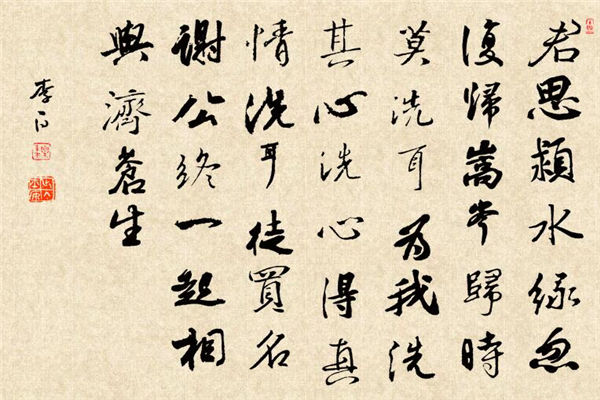 君思潁水綠忽
復歸嵩岑歸時
莫洗耳為我洗
其心洗心得真
情洗耳徒買名
謝公終一起相
與濟蒼生
李白